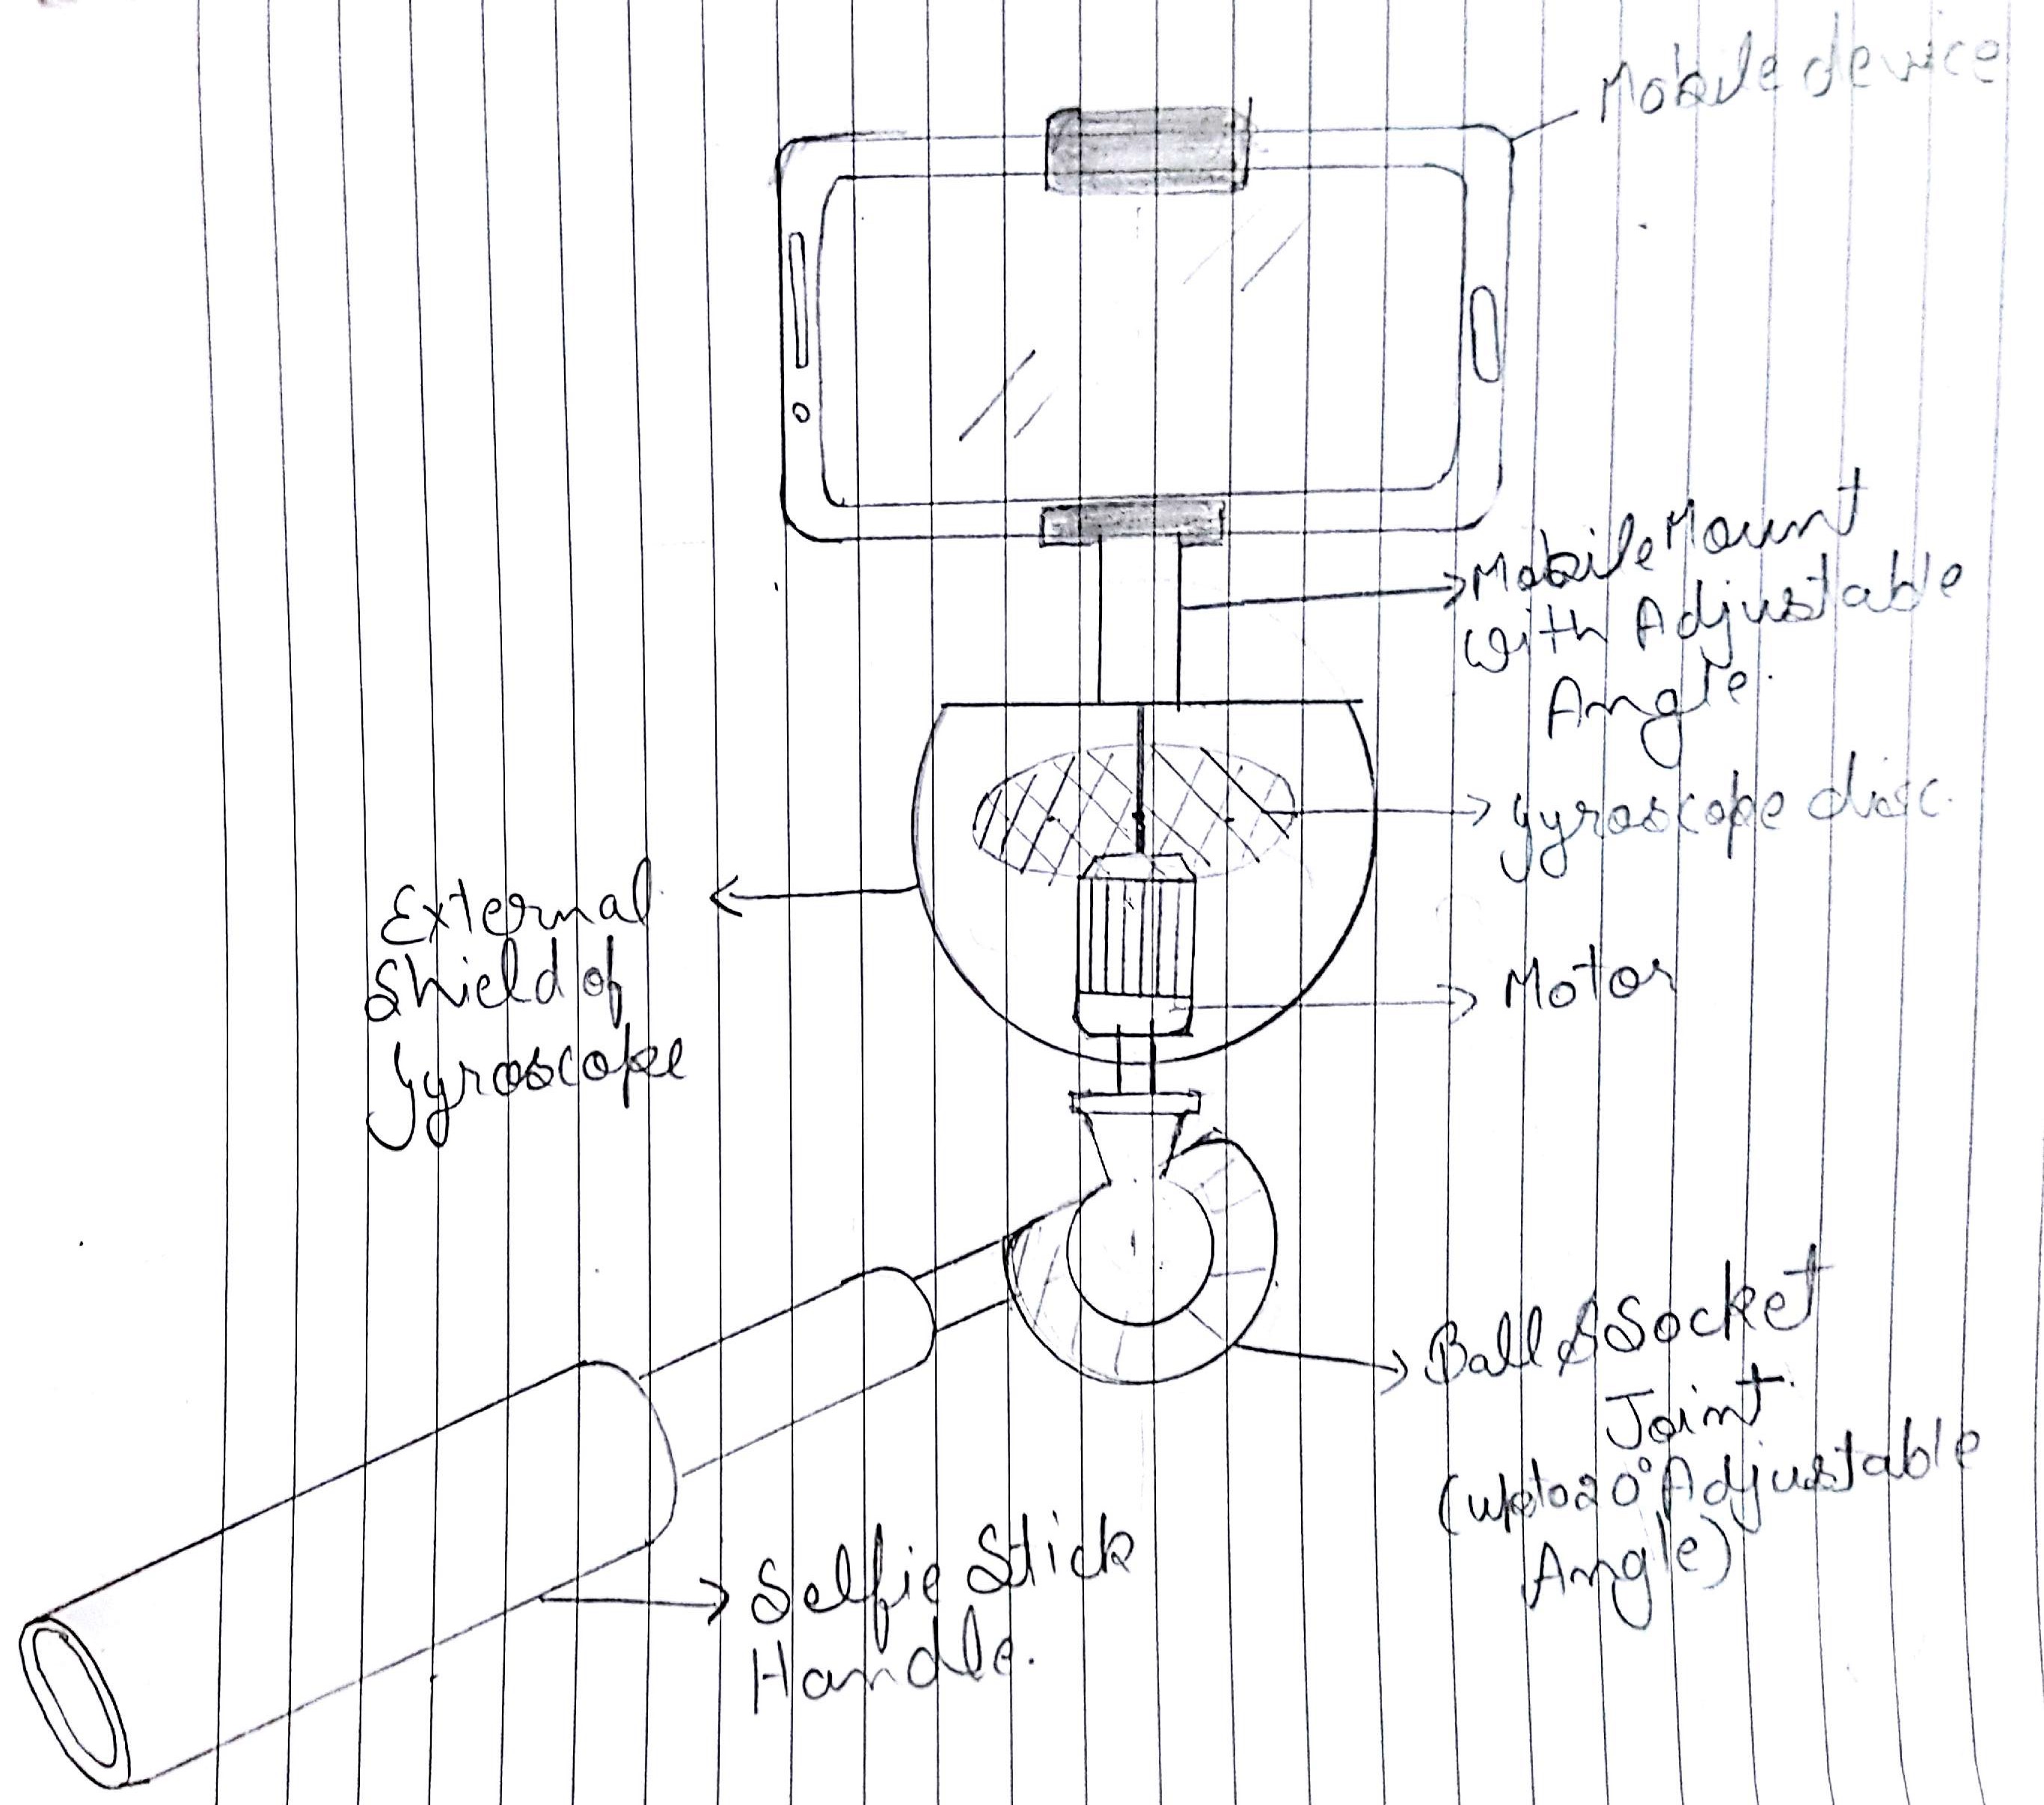 Mobile device
Mobile Mount
with Adjustable
Angle.
gyroscope disc.
External
Shield of
gyroscope
Motor
Ball & Socket
Joint.
(upto 20° Adjustable
Angle)
Selfie Stick
Handle.